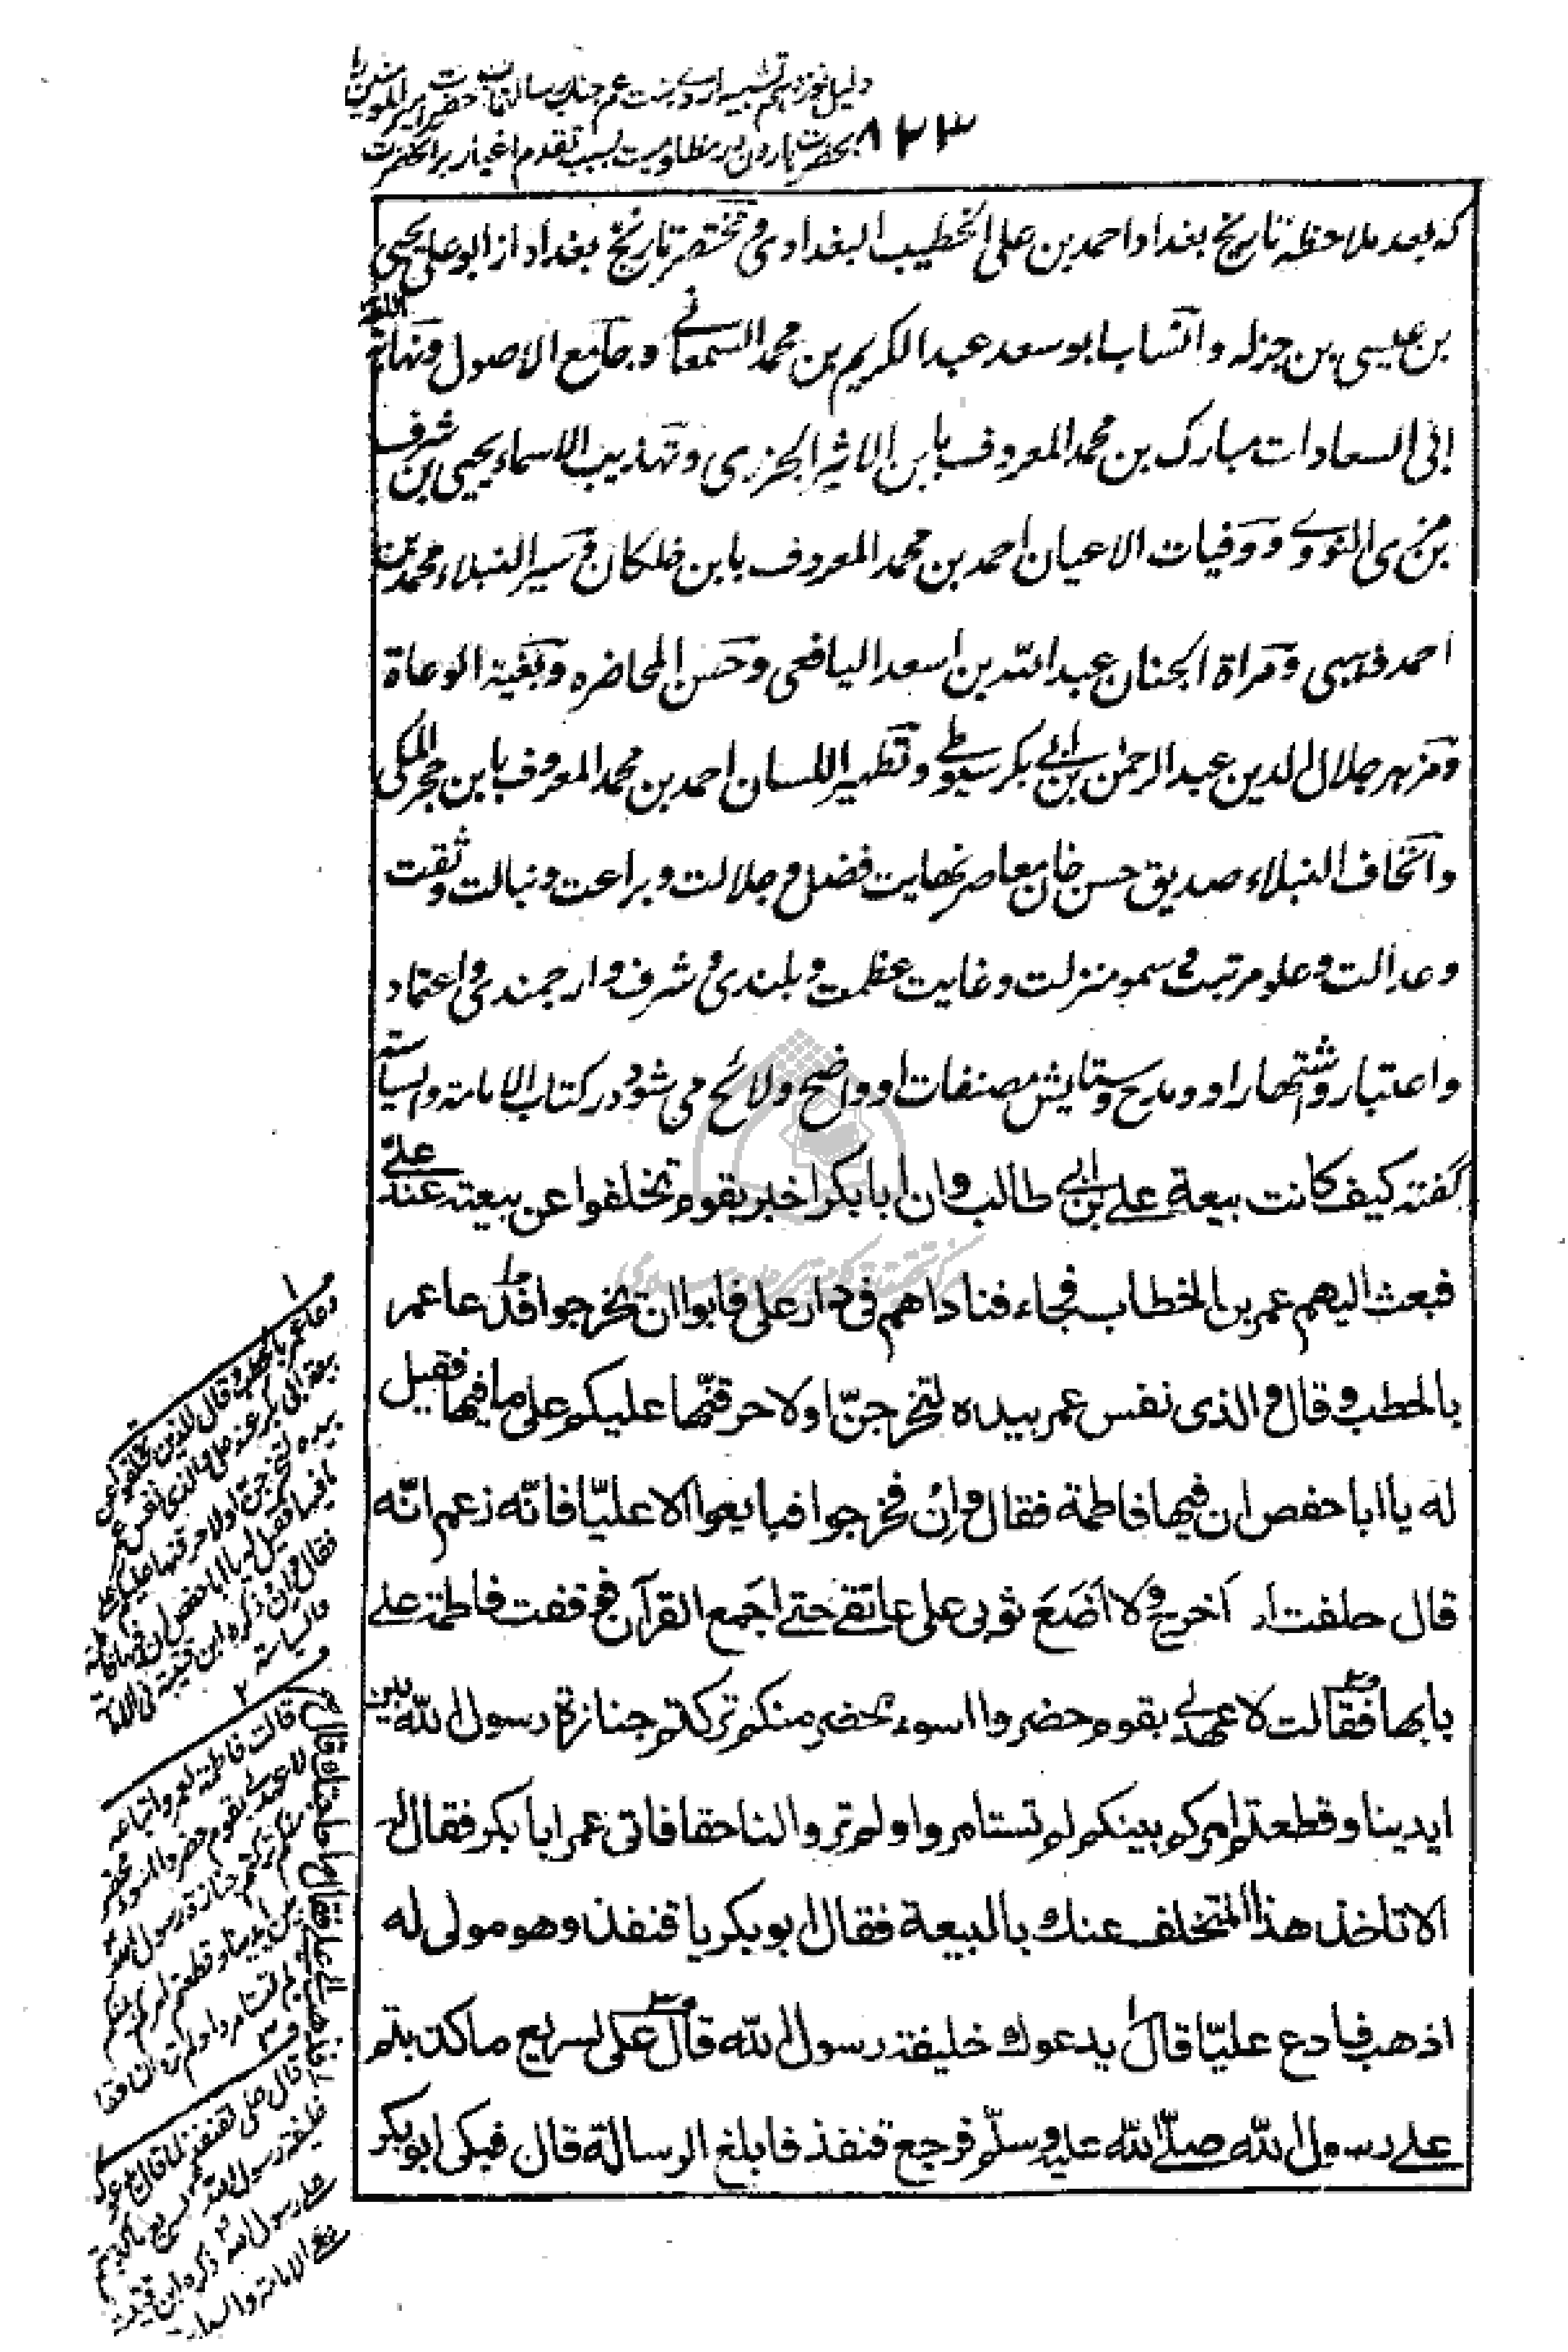 دلیل نوزدهم تشبیه ارے بنت عم جناب رسالتمآب حضرت امیر المومنین را
۸۲۳ بحضرت هارون در مظلومیت بسبب تقدم اغیار بر آنحضرت
که بعد ملاحظهٔ تاریخ بغداد احمد بن علی الخطیب البغدادی و مختصر تاریخ بغداد از ابو علی یحیی
بن عیسی بن جزله و انساب ابو سعد عبد الکریم بن محمد السمعانے و جامع الاصول و نهایة اللغة
ابی السعادات مبارک بن محمد المعروف بابن الاثیر الجزری و تهذیب الاسماء یحیی بن شرف
بن مری النووے و وفیات الاعیان احمد بن محمد المعروف بابن خلکان و سیر النبلاء محمد بن
احمد ذهبی و مراة الجنان عبد الله بن اسعد الیافعی و حسن المحاضره و بغیة الوعاة
و مزهر جلال الدین عبد الرحمن بن ابی بکر سیوطے و تطهیر اللسان احمد بن محمد المعروف بابن حجر المکی
و اتحاف النبلاء صدیق حسن خان معاصر نهایت فضل و جلالت و براعت و نبالت و ثقت
و عدالت و علو مرتبت و سمو منزلت و غایت عظمت و بلندی و شرف و ارجمندی و اعتماد
و اعتبار و اشتهار او و مدح و ستایش مصنفات او واضح و لائح می شود در کتاب الامامة و السیاسته
گفته کیف کانت بیعة علی بن ابی طالب و ان ابا بکر اخبر بقوم تخلفوا عن بیعته عند علیّ
فبعث الیهم عمر بن الخطاب فجاء فناداهم فی دار علی فابوا ان یخرجوا فدعا عمر
بالحطب و قال و الذی نفس عمر بیده لتخرجنّ او لاحرقنّها علیکم علی ما فیها فقیل
له یا ابا حفص ان فیها فاطمة فقال و ان فخرجوا فبایعوا الا علیّا فانّه زعم انّه
قال حلفت ان اخرج و لا اضع ثوبی علی عاتقی حتے اجمع القرآن فوقفت فاطمة علے
بابها فقالت لا عهد لے بقوم حضروا اسوء محضر منکم ترکتم جنازة رسول الله بین
ایدینا و قطعتم امرکم بینکم لم تستامروا و لم تروا لنا حقا فاتی عمر ابا بکر فقال له
الا تاخذ هذا المتخلف عنک بالبیعة فقال ابو بکر یا قنفذ و هو مولی له
اذهب فادع علیّا قال یدعوک خلیفة رسول الله قال علی لسریع ما کذبتم
علے رسول الله صلّے الله علیه و سلّم فرجع قنفذ فابلغ الرسالة قال فبکی ابو بکر
۱
دعا عمر بالحطب و قال للذین تخلفوا عن
بیعة ابی بکر عند علی و الذی نفس عمر
بیده لتخرجن او لاحرقنها علیکم علی
ما فیها فقیل له یا ابا حفص ان فیها فاطمة
فقال و ان ذکره ابن قتیبة فی الامامة
و السیاسة
۲
قالت فاطمة لعمر و اتباعه
لا عهد لے بقوم حضروا اسوء محضر
منکم ترکتم جنازة رسول الله
بین ایدینا و قطعتم امرکم بینکم
لم تستامروا و لم تروا لنا حقا
۳
قال علی لقنفذ لما قال یدعوک
خلیفة رسول الله لسریع ما کذبتم
علے رسول الله ذکره ابن قتیبة
فی الامامة و السیاسة
فذهب الے علے فقال ما حاجتک قال